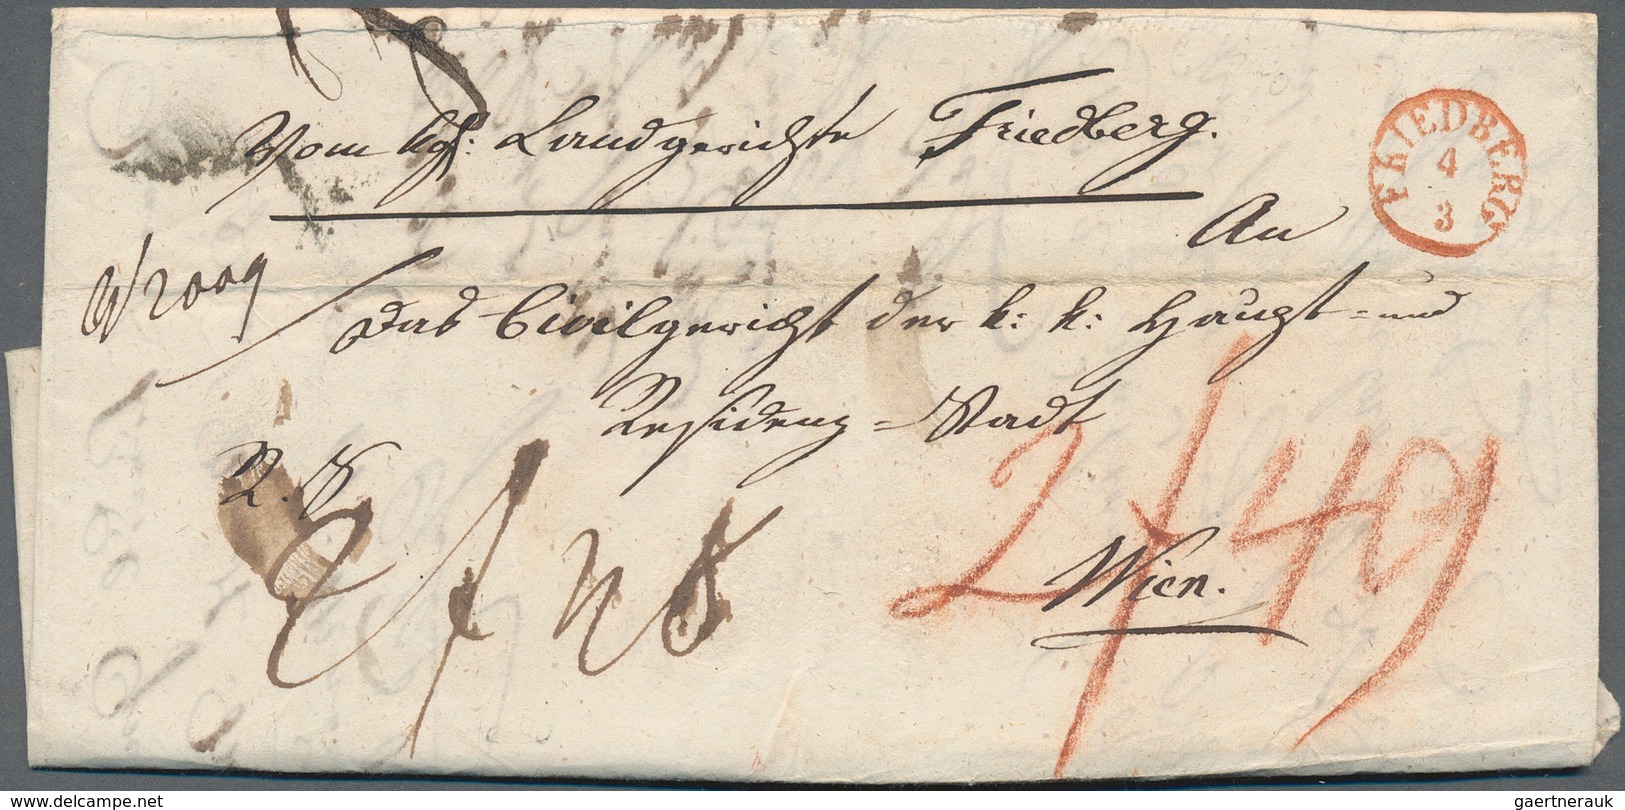 Vom kgl: Landgerichte Friedberg.
FRIEDBERG
4
3
An
12009
Das Civilgericht der k: k: Haupt- und
Residenz-Stadt
R. S.
2/49
Wien.
delcampe.net
gaertnerauk